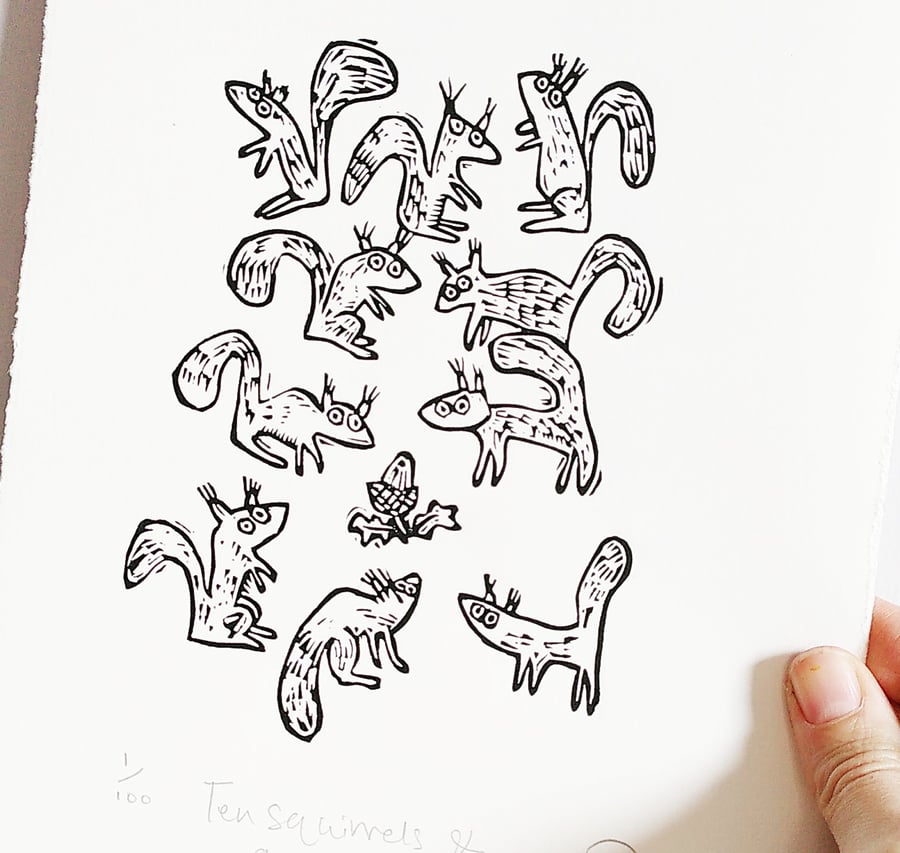 1/100
Ten squirrels &